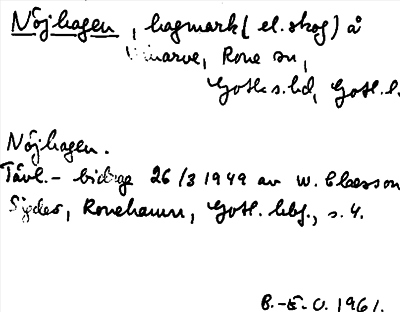 Nöjhagen, hagmark (el. skog) å
Rone sn,
Gotl. s. hd, Gotl. l.
Nöjhagen.
Tävl.- bidrag 26/3 1949 av W. Claesson
Ronehamn, Gotl. hbf., s. 4.
B.-E. O. 1961.